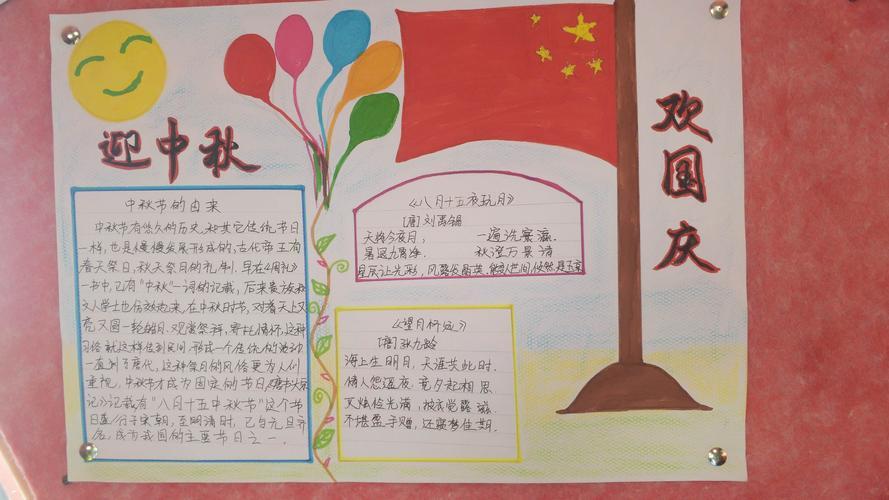 迎中秋
欢国庆
中秋节的由来
中秋节有悠久的历史,和其它传统节日
一样,也是慢慢发展形成的,古代帝王有
春天祭日,秋天祭月的礼制,早在《周礼》
一书中,已有"中秋"一词的记载,后来贵族和
文人学士也仿效起来,在中秋时节,对着天上又
亮又圆一轮皓月,观赏祭拜,寄托情怀,这种
习俗就这样传到民间,形成一个传统的活动
一直到了唐代,这种祭月的风俗更为人们
重视,中秋节才成为固定的节日,《唐书太宗
记》记载有"八月十五中秋节"这个节
日盛行于宋朝,至明清时,已与元旦齐
名,成为我国的主要节日之一.
《八月十五夜玩月》
[唐]刘禹锡
天将今夜月, 一遍洗寰瀛.
暑退九霄净. 秋澄万景清
星辰让光彩,风露发晶英.能变人世间,攸然是玉京
《望月怀远》
[唐]张九龄
海上生明月,天涯共此时.
情人怨遥夜,竟夕起相思
灭烛怜光满,披衣觉露滋.
不堪盈手赠,还寝梦佳期.